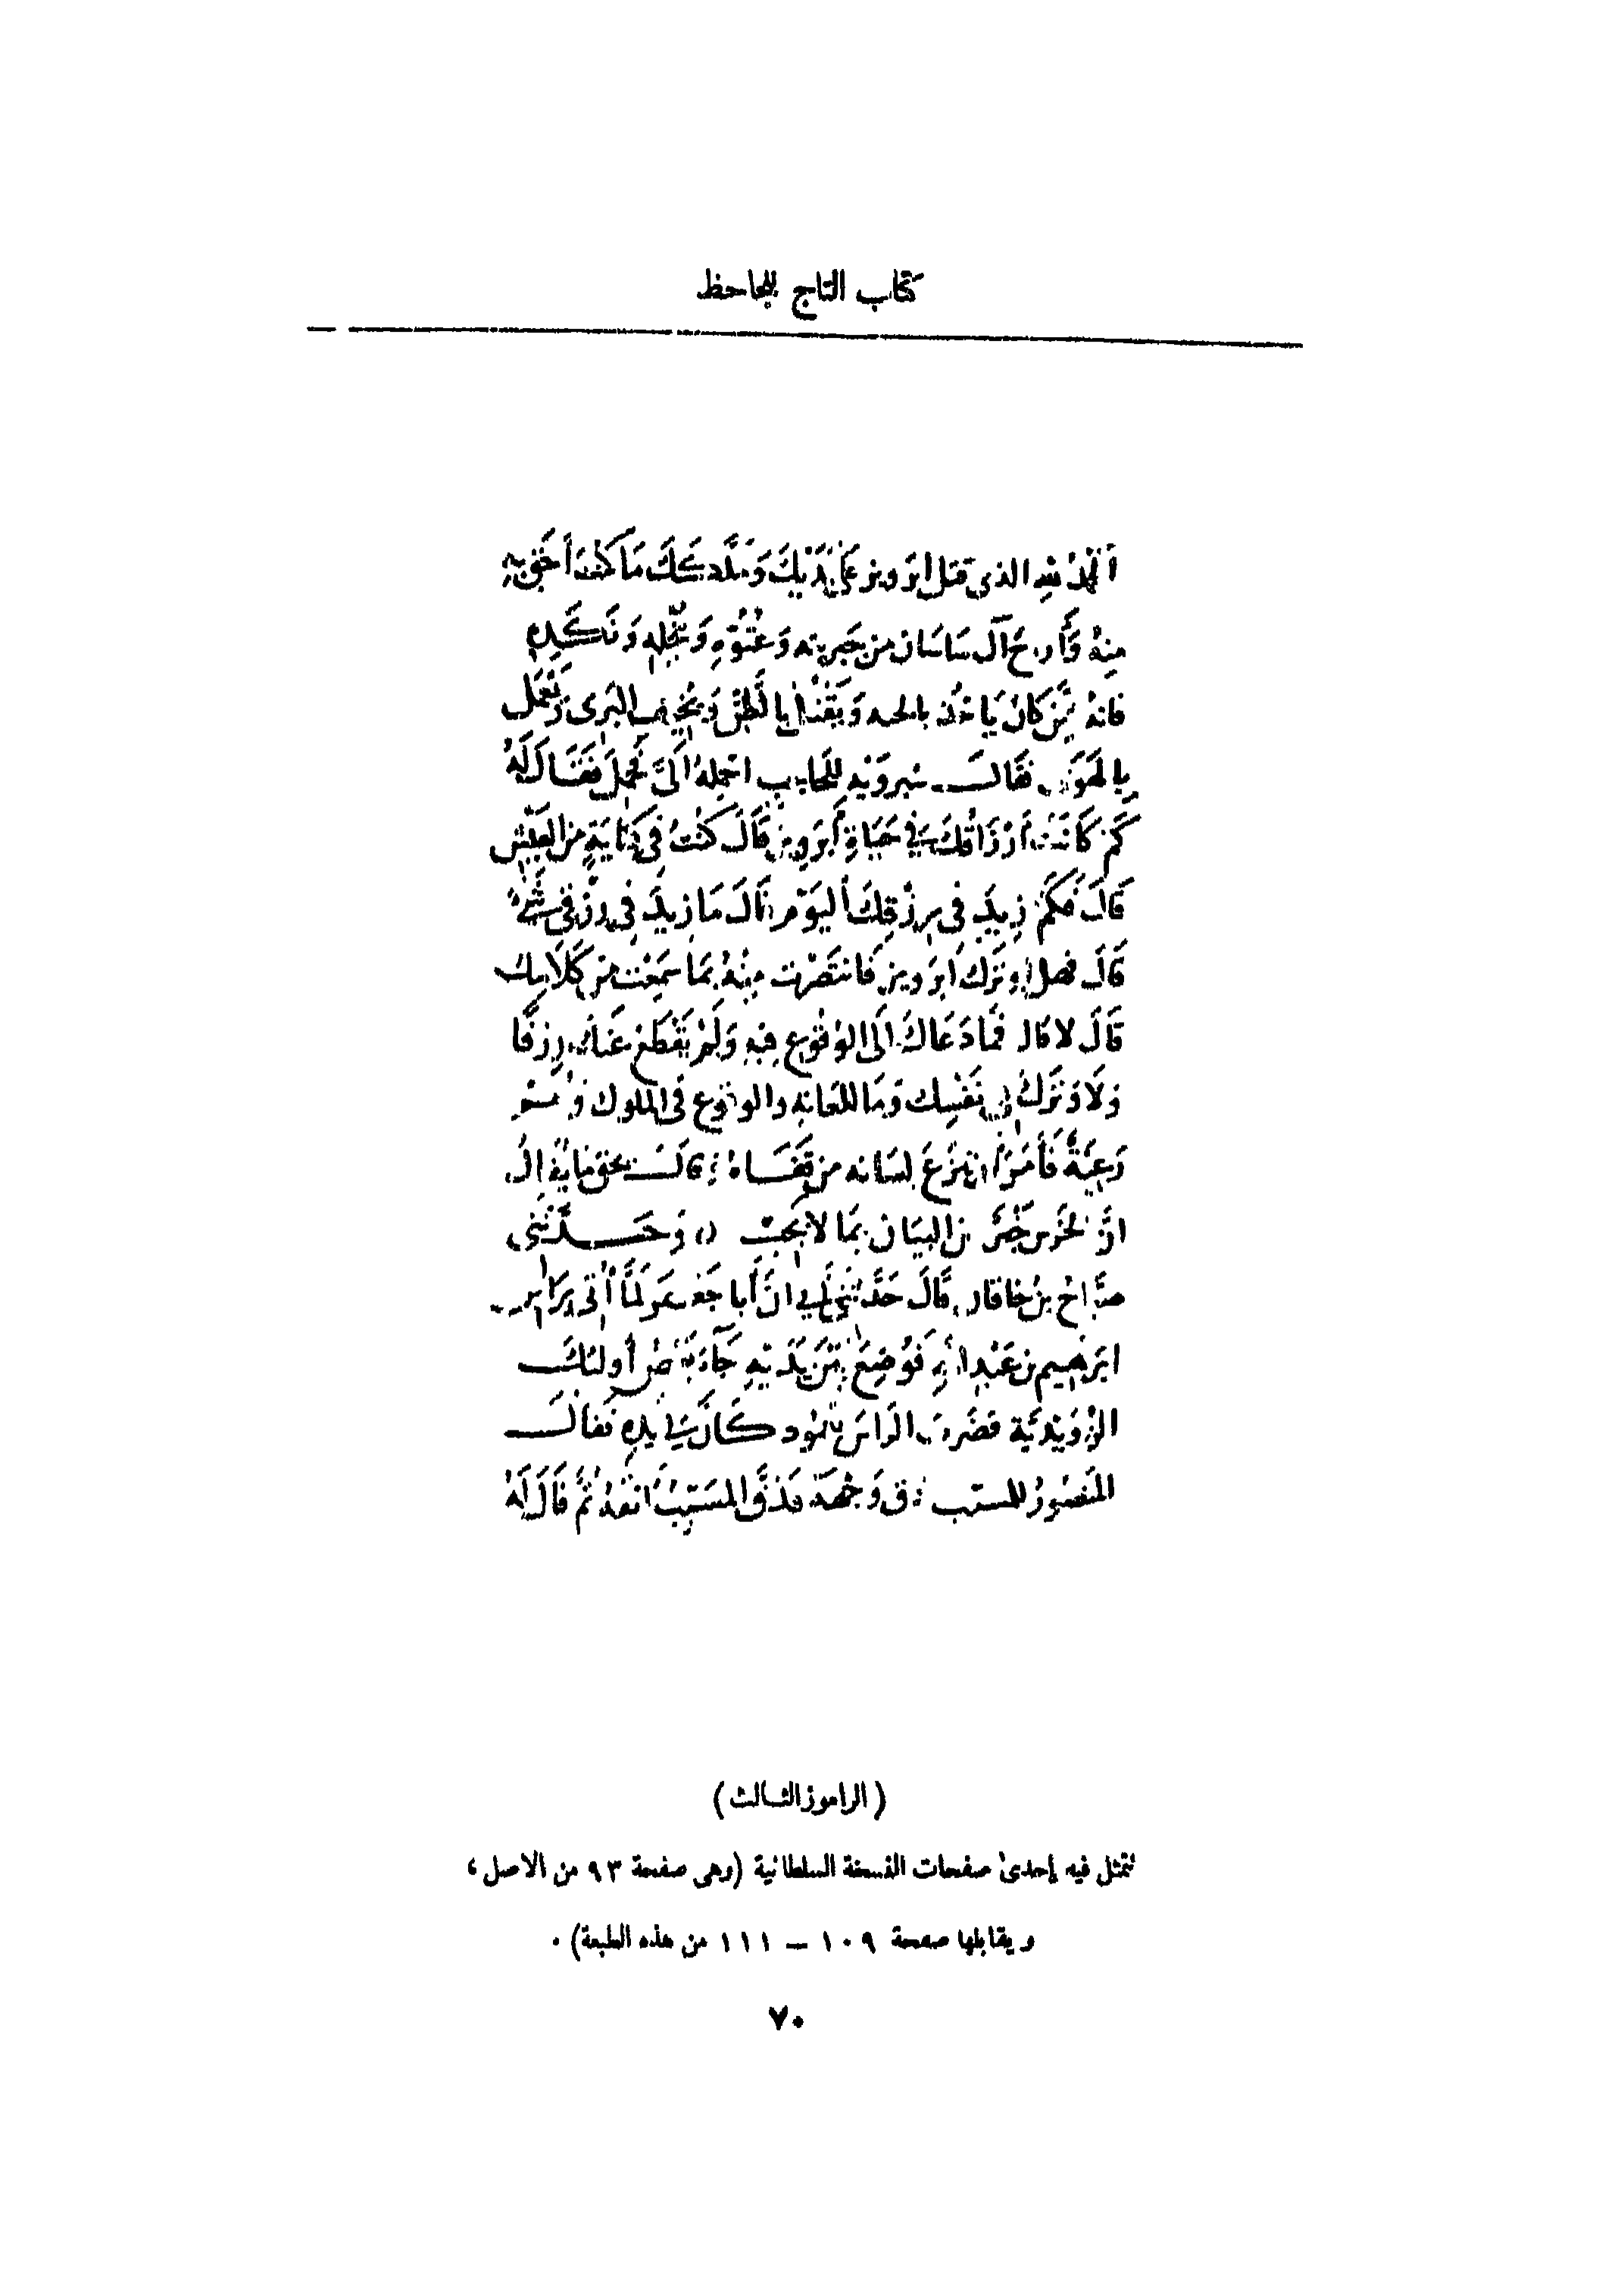 كتاب التاج للجاحظ
الحمد لله الذى قتل ابرويز على يديك وملكك ما كنت أحق به
منه وأراح آل ساسان من جبريته وعتوّه وبخله ونكده
فانه ممن كان يأخذ بالحبه ويقتل بالظن ويخيف البرى ويعمل
بالهوى فقالـــ شيرويه للحاجب احمله الىّ فحمل فقال له
كم كانت أرزاقك في حياة أبرويز قال كنت في كفاية من العيش
قال فكم زيد في رزقك اليوم قال ما زيد في رزقي شيء
قال فهل وترك ابرويز فانتصرت منه بما سمعت من كلامك
قال لا قال فما دعاك الى الوقوع فيه ولم يقطع عنك رزقا
ولا وترك في نفسك وما للعامه والوقوع في الملوك وهم
رعيّة فأمر ان ينزع لسانه من قفاه وقالـــ بحق ما يقال
ان الخرس خير من البيان بما لا يجب () وحـــدّثني
صبّاح بن خاقان قال حدّثني أبي انّ أبا جعفر لمّا أتى برأس
ابرهيم بن عبد الله فوضع بين يديه جآء بعض أولئكـــ
الرّاونديّة فضرب الراس بعمود كان في يده فقالـــ
المنصور للمسيب دق وجهه فدقّ المسيب انفه ثم قال له
(الراموز الثالث)
تتمثل فيه إحدى صفحات النسخة السلطانية (وهى صفحة ٩٣ من الاصل ،
ويقابلها صفحة ١٠٩ — ١١١ من هذه الطبعة) .
٧٠